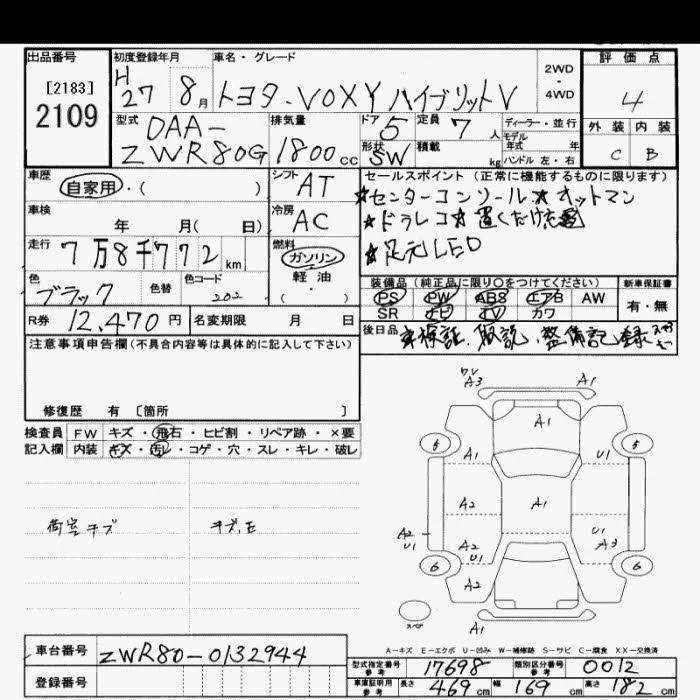 出品番号 初度登録年月 車名・グレード 2WD・4WD 評価点
[2183]
2109
H 27 8月 トヨタ・VOXY ハイブリットV 4
型式 DAA-ZWR80G 排気量 1800cc ドア 5 定員 7人 ディーラー・並行
形状 SW 積載 kg モデル年式 年 ハンドル 左・右
外装 内装
C B
車歴 自家用・( ) シフト AT
車検 年 月( 日) 冷房 AC
走行 7万8千772km 燃料 ガソリン・軽油・( )
色 ブラック 色替 色コード 202
R券 12,470円 名変期限 月 日
セールスポイント(正常に機能するものに限ります)
★センターコンソール ★オットマン
★ドラレコ ★置くだけ充電
★足元LED
装備品(純正品に限り○をつけてください) 新車保証書
PS PW ABS エアB AW 有・無
SR ナビ TV カワ
後日品 車検証、取説、整備記録
注意事項申告欄(不具合内容等は具体的に記入して下さい)
修復歴 有 [箇所 ]
検査員記入欄
FW キズ・飛石・ヒビ割・リペア跡・×要
内装 キズ・汚レ・コゲ・穴・スレ・キレ・破レ
荷室キズ キズ、E
A3 A1
A1
5 5
A1 U1
A2 A1
A2 U1 A2 U1 U1 A3
6 6
A2
スペア A1
A-キズ E-エクボ U-凹み W-補修跡 S-サビ C-腐食 XX-交換済
車台番号 ZWR80-0132944
登録番号
型式指定番号 参考 17698 類別区分番号 参考 0012
車庫証明用 参考 長さ 469cm 幅 169cm 高さ 182cm